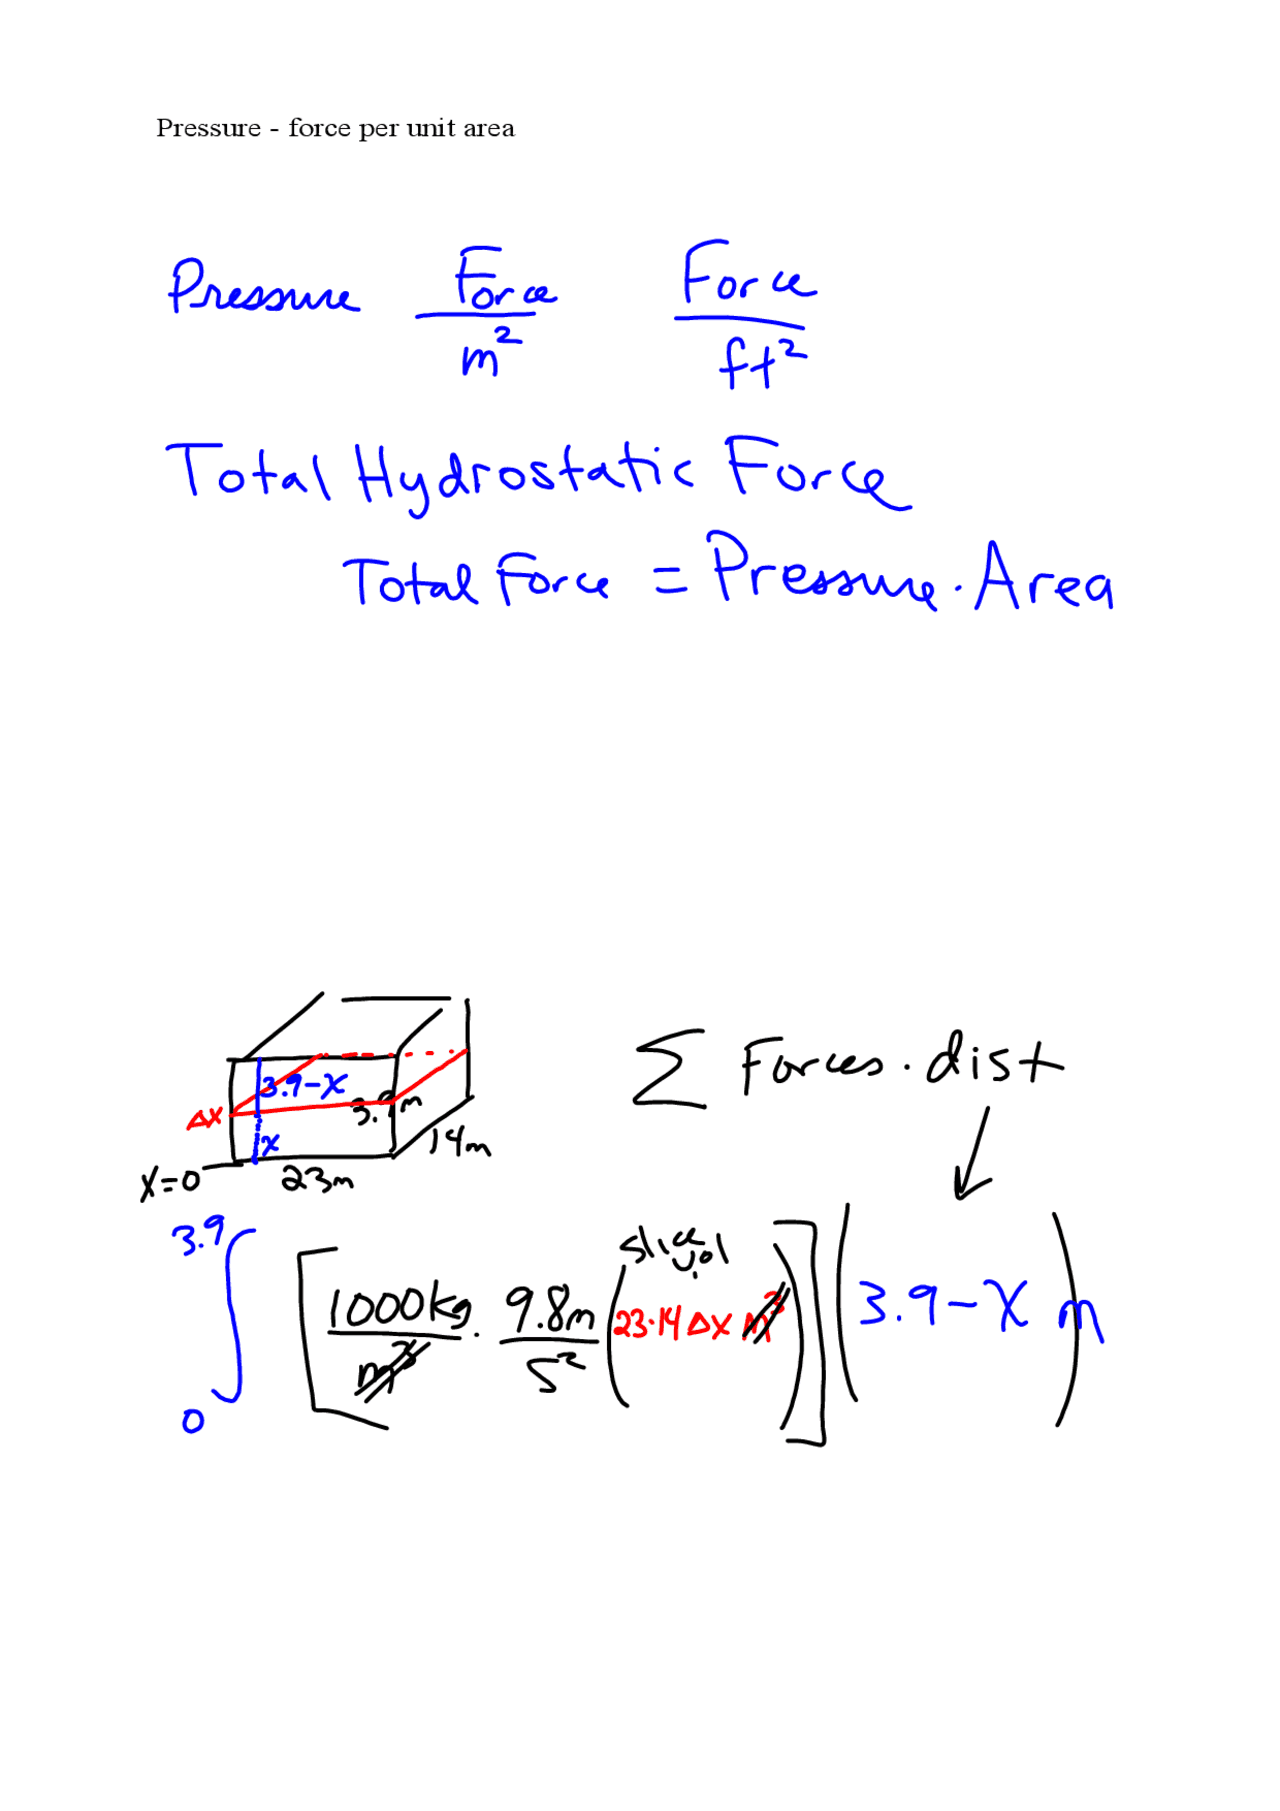 Pressure - force per unit area
Pressure Force/m² Force/ft²
Total Hydrostatic Force
Total Force = Pressure · Area
3.9-x
Δx
3.9m
x
14m
x=0
23m
Σ Forces · dist
slice vol
∫₀^3.9 [1000kg/m³ · 9.8m/s² (23·14Δx m³)] (3.9-x m)